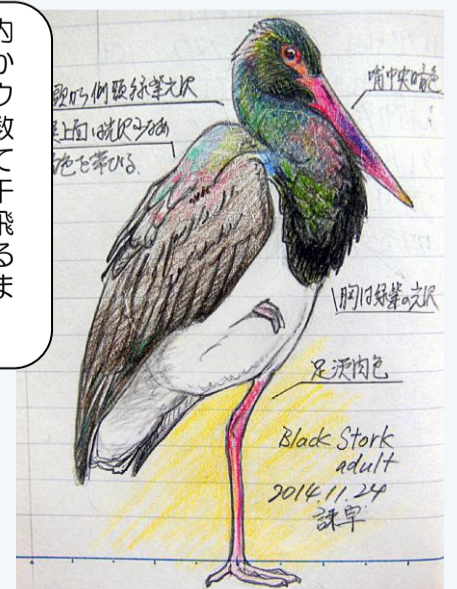 内
か
ウ
数
て
干
飛
る
ま
頭から側頸緑紫光沢
上面は光沢のある
色を帯びる.
嘴中央暗色
胸は緑紫の光沢
足淡肉色
Black Stork
adult
2014.11.24
諫早